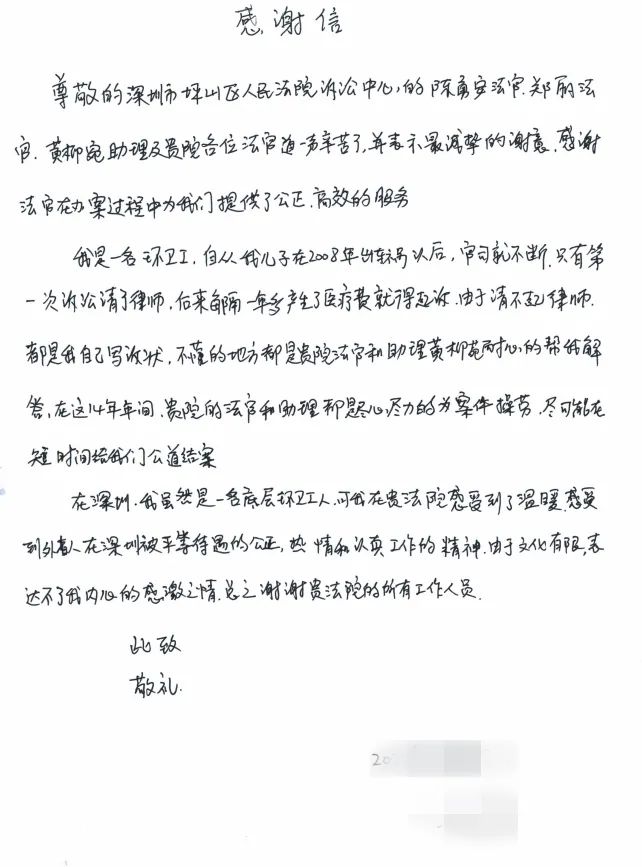 感谢信
尊敬的深圳市坪山区人民法院诉讼中心,的陈勇安法官.郑丽法
官.黄柳菀助理及贵院各位法官道一声辛苦了,并表示最诚挚的谢意.感谢
法官在办案过程中为我们提供了公正.高效的服务
我是一名环卫工,自从我儿子在2008年出车祸以后,官司就不断.只有第
一次诉讼请了律师,后来每隔一年多产生了医疗费就得起诉.由于请不起律师.
都是我自己写诉状,不懂的地方都是贵院法官和助理黄柳菀耐心的帮我解
答,在这14年年间.贵院的法官和助理都是尽心尽力的为案件操劳.尽可能在
短时间给我们公道结案
在深圳.我虽然是一名底层环卫工人.可我在贵法院感受到了温暖.感受
到外省人在深圳被平等待遇的公正,热情和认真工作的精神.由于文化有限,表
达不了我内心的感激之情.总之谢谢贵法院的所有工作人员.
此致
敬礼.
20